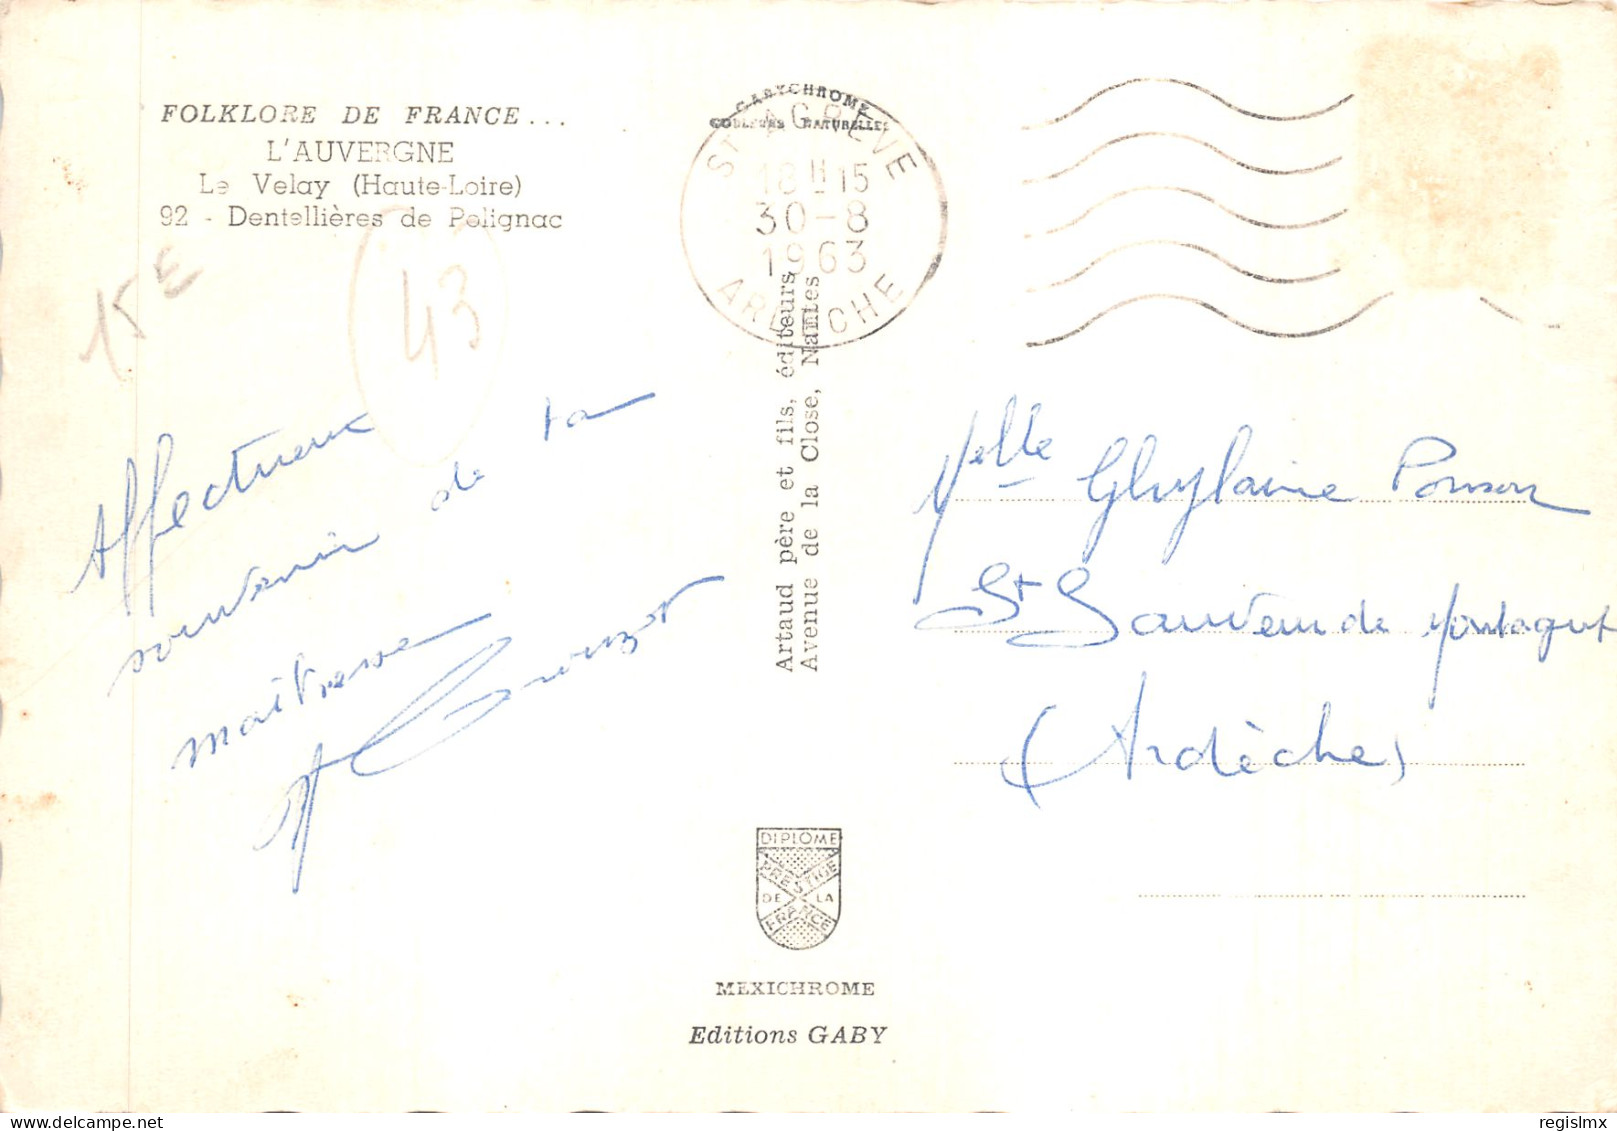 FOLKLORE DE FRANCE...
L'AUVERGNE
Le Velay (Haute-Loire)
92 - Dentellières de Polignac
15 E
43
GABYCHROME
COULEURS NATURELLES
ST AGREVE
18 H 15
30-8
1963
ARDECHE
Affectueux
souvenir de ta
maîtresse
Artaud père et fils, éditeurs
Avenue de la Close, Nantes
Melle Ghylaine Ponson
St Sauveur de Montagut
(Ardèche)
DIPLOME
PRESTIGE
DE LA
FRANCE
MEXICHROME
Editions GABY
Delcampe.net
regisImx